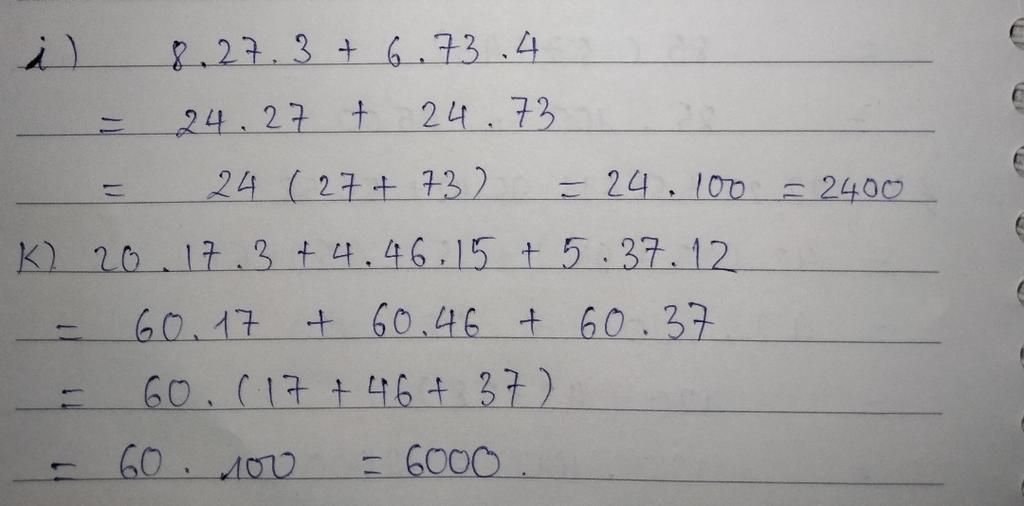 i) 8.27.3 + 6.73.4
= 24.27 + 24.73
= 24 (27 + 73) = 24.100 = 2400
K) 20.17.3 + 4.46.15 + 5.37.12
= 60.17 + 60.46 + 60.37
= 60.(17 + 46 + 37)
= 60.100 = 6000.